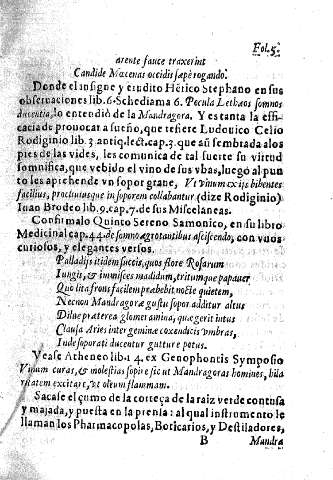 Fol.5.
arente fauce traxerint
Candide Mæcenas occidis sæpe rogando.
Donde el insigne y erudito Hẽrico Stephano en sus
obseruaciones lib.6. Schediama 6. Pocula Lethæos somnos
ducentia, lo entendiò de la Mandragora. Y es tanta la effi-
cacia de prouocar a sueño, que refiere Ludouico Celio
Rodiginio lib.3. antiq.lect.cap.3. que aũ sembrada a los
pies de las vides, les comunica de tal suerte su virtud
somnifica, que vebido el vino de sus vbas, luego al pun
to les aprehende vn sopor graue, Vt vinum ex ijs bibentes
facilius, procliuiusque in soporem collabantur (dize Rodiginio)
Iuan Brodeo lib.9.cap.7. de sus Misceláneas.
Confirmalo Quinto Sereno Samonico, en su libro
Medicinal cap.44. de somno ægrotantibus asciscendo, con vnos
curiosos, y elegantes versos.
Palladijs itidem succis, quos flore Rosarum
Iungis, & immisces madidum, tritumque papauer
Quo lita frons facilem præbebit nocte quietem,
Necnon Mandragoræ gustu sopor additur altus
Dilue præterea glomeramina, quæ gerit intus
Clausa Aries inter geminæ coxendicis vmbras,
Inde soporati ducentur gutture potus.
Vease Atheneo lib.14. ex Genophontis Symposio
Vinum curas, & molestias sopit sicut Mandragoras homines, hila
ritatem excitat, vt oleum flammam.
Sacase el çumo de la corteça de la raiz verde contusa
y majada, y puesta en la prensa: al qual instrumento le
llaman los Pharmacopolas, Boticarios, y Destiladores,
B Mandra